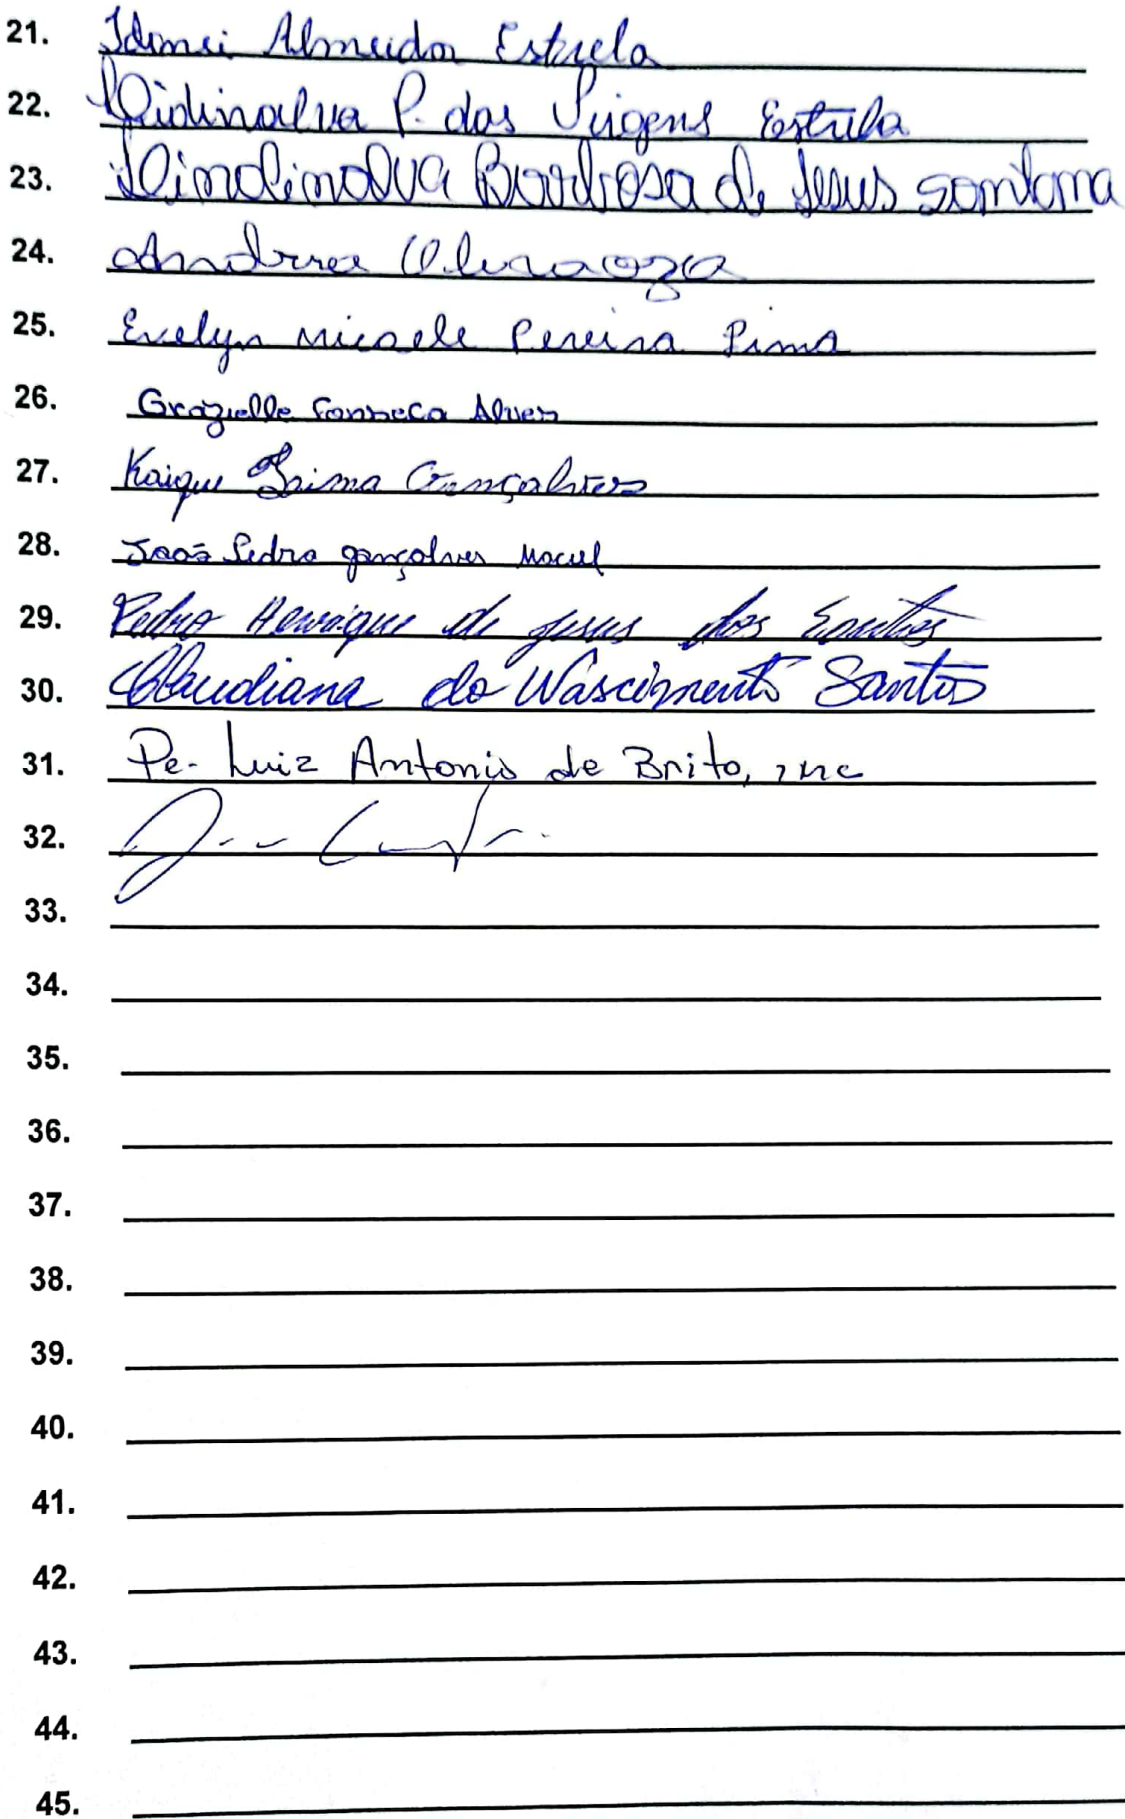 21. Idinei Almeida Estrela
22. Lidinalva P. das Virgens Estrela
23. Lindinalva Barbosa de Jesus Santana
24. Andrea
25. Evelyn Micaele Pereira Lima
26. Grazielle Fonseca Alves
27. Kaique Laima Gonçalves
28. João Pedro gonçalves Maciel
29. Pedro Henrique de Jesus dos Santos
30. Claudiana do Nascimento Santos
31. Pe. Luiz Antonio de Brito, imc
32.
33.
34.
35.
36.
37.
38.
39.
40.
41.
42.
43.
44.
45.